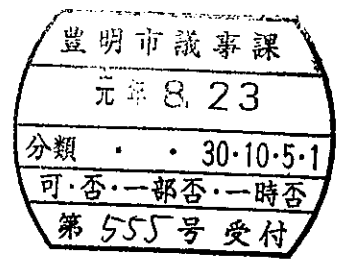 豊明市議事課
元年8.23
分類 ・ ・ 30・10・5・1
可・否・一部否・一時否
第555号受付